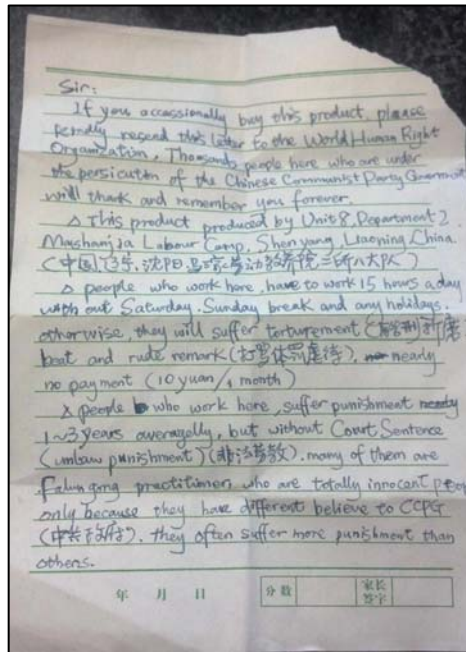 Sir:
If you occassionally buy this product, please
kindly resend this letter to the World Human Right
Organization. Thousands people here who are under
the persicution of the Chinese Communist Party Government
will thank and remember you forever.
△ This product produced by Unit 8, Department 2,
Mashanjia Labour Camp, Shenyang, Liaoning, China.
(中国,辽宁,沈阳,马三家劳动教养院二所八大队)
△ people who work here, have to work 15 hours a day
with out Saturday, Sunday break and any holidays.
otherwise, they will suffer torturement (酷刑折磨)
beat and rude remark (打骂体罚虐待), nearly
no payment (10 yuan/1 month)
△ people who work here, suffer punishment
1~3 years averagelly, but without Court Sentence
(unlaw punishment) (非法劳教). many of them are
Falungong practitioner, who are totally innocent people
only because they have different believe to CCPG
(中共政府), they often suffer more punishment than
others.
年 月 日 分数 家长签字